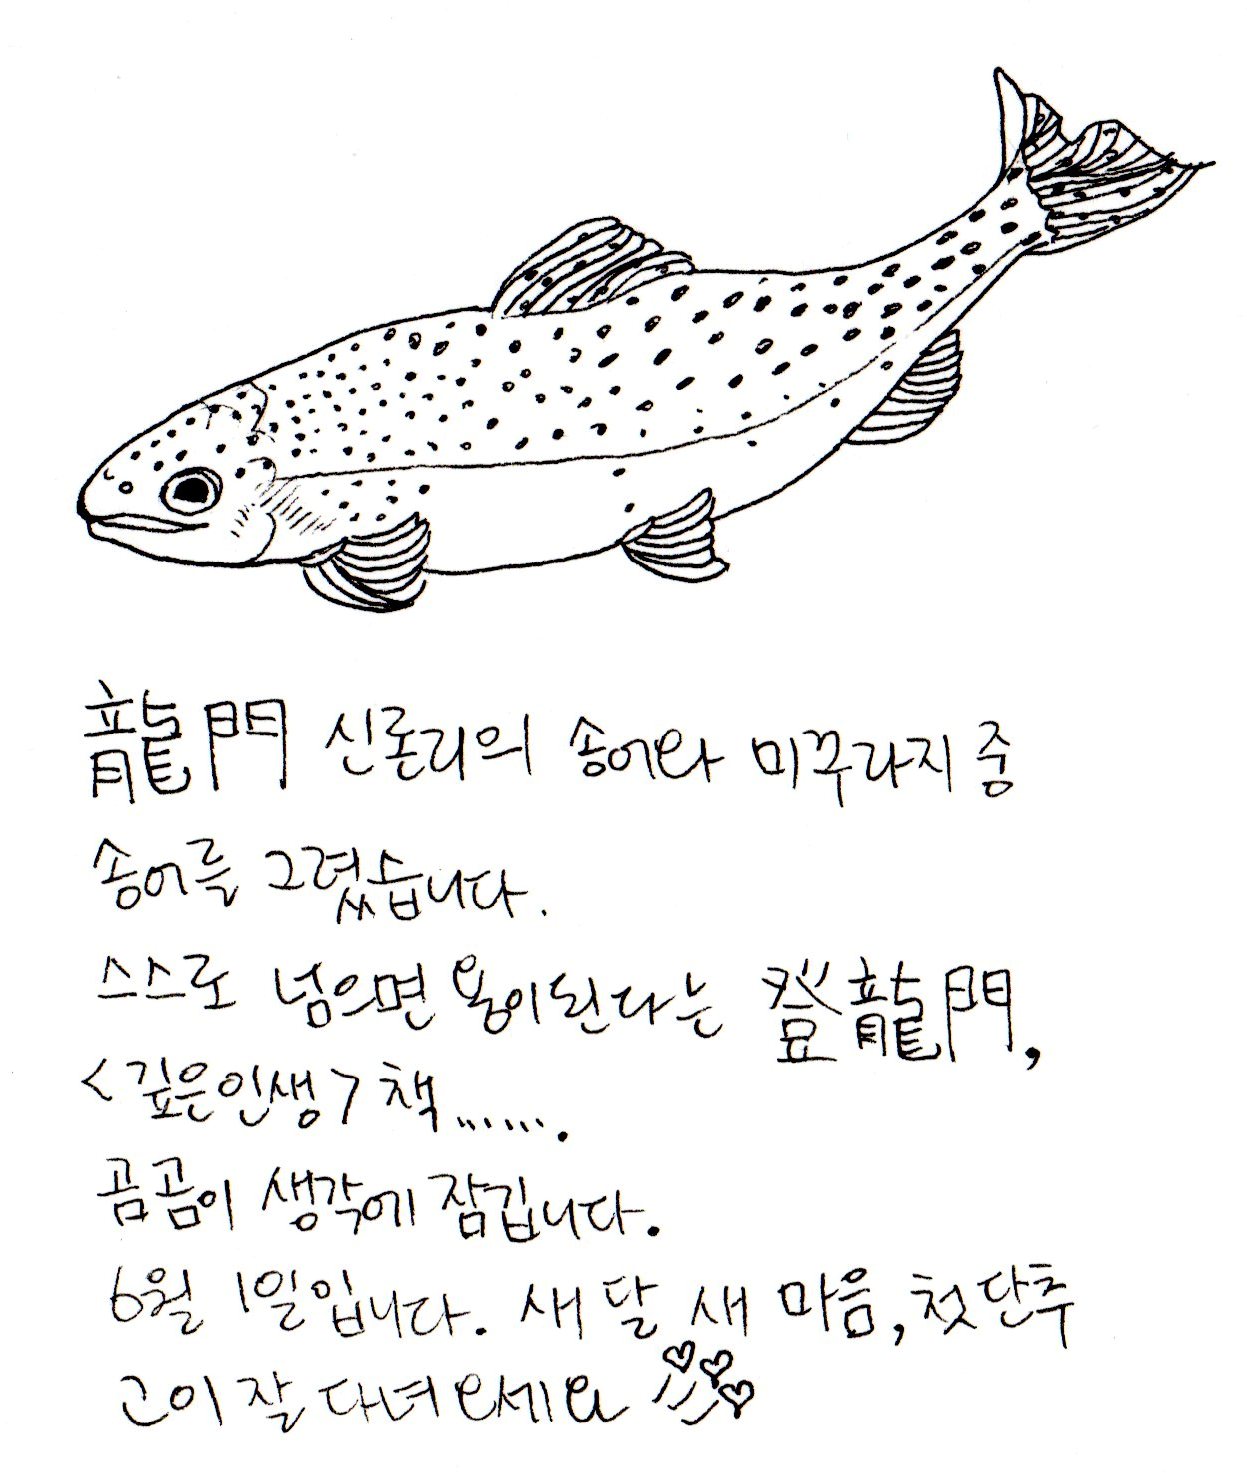 龍門 신론리의 송어와 미꾸라지 중
송어를 그렸습니다.
스스로 넘으면 용이된다는 登龍門,
<깊은인생> 책.......
곰곰이 생각에 잠깁니다.
6월 1일입니다. 새 달 새 마음, 첫단추
고이 잘 다녀오세요